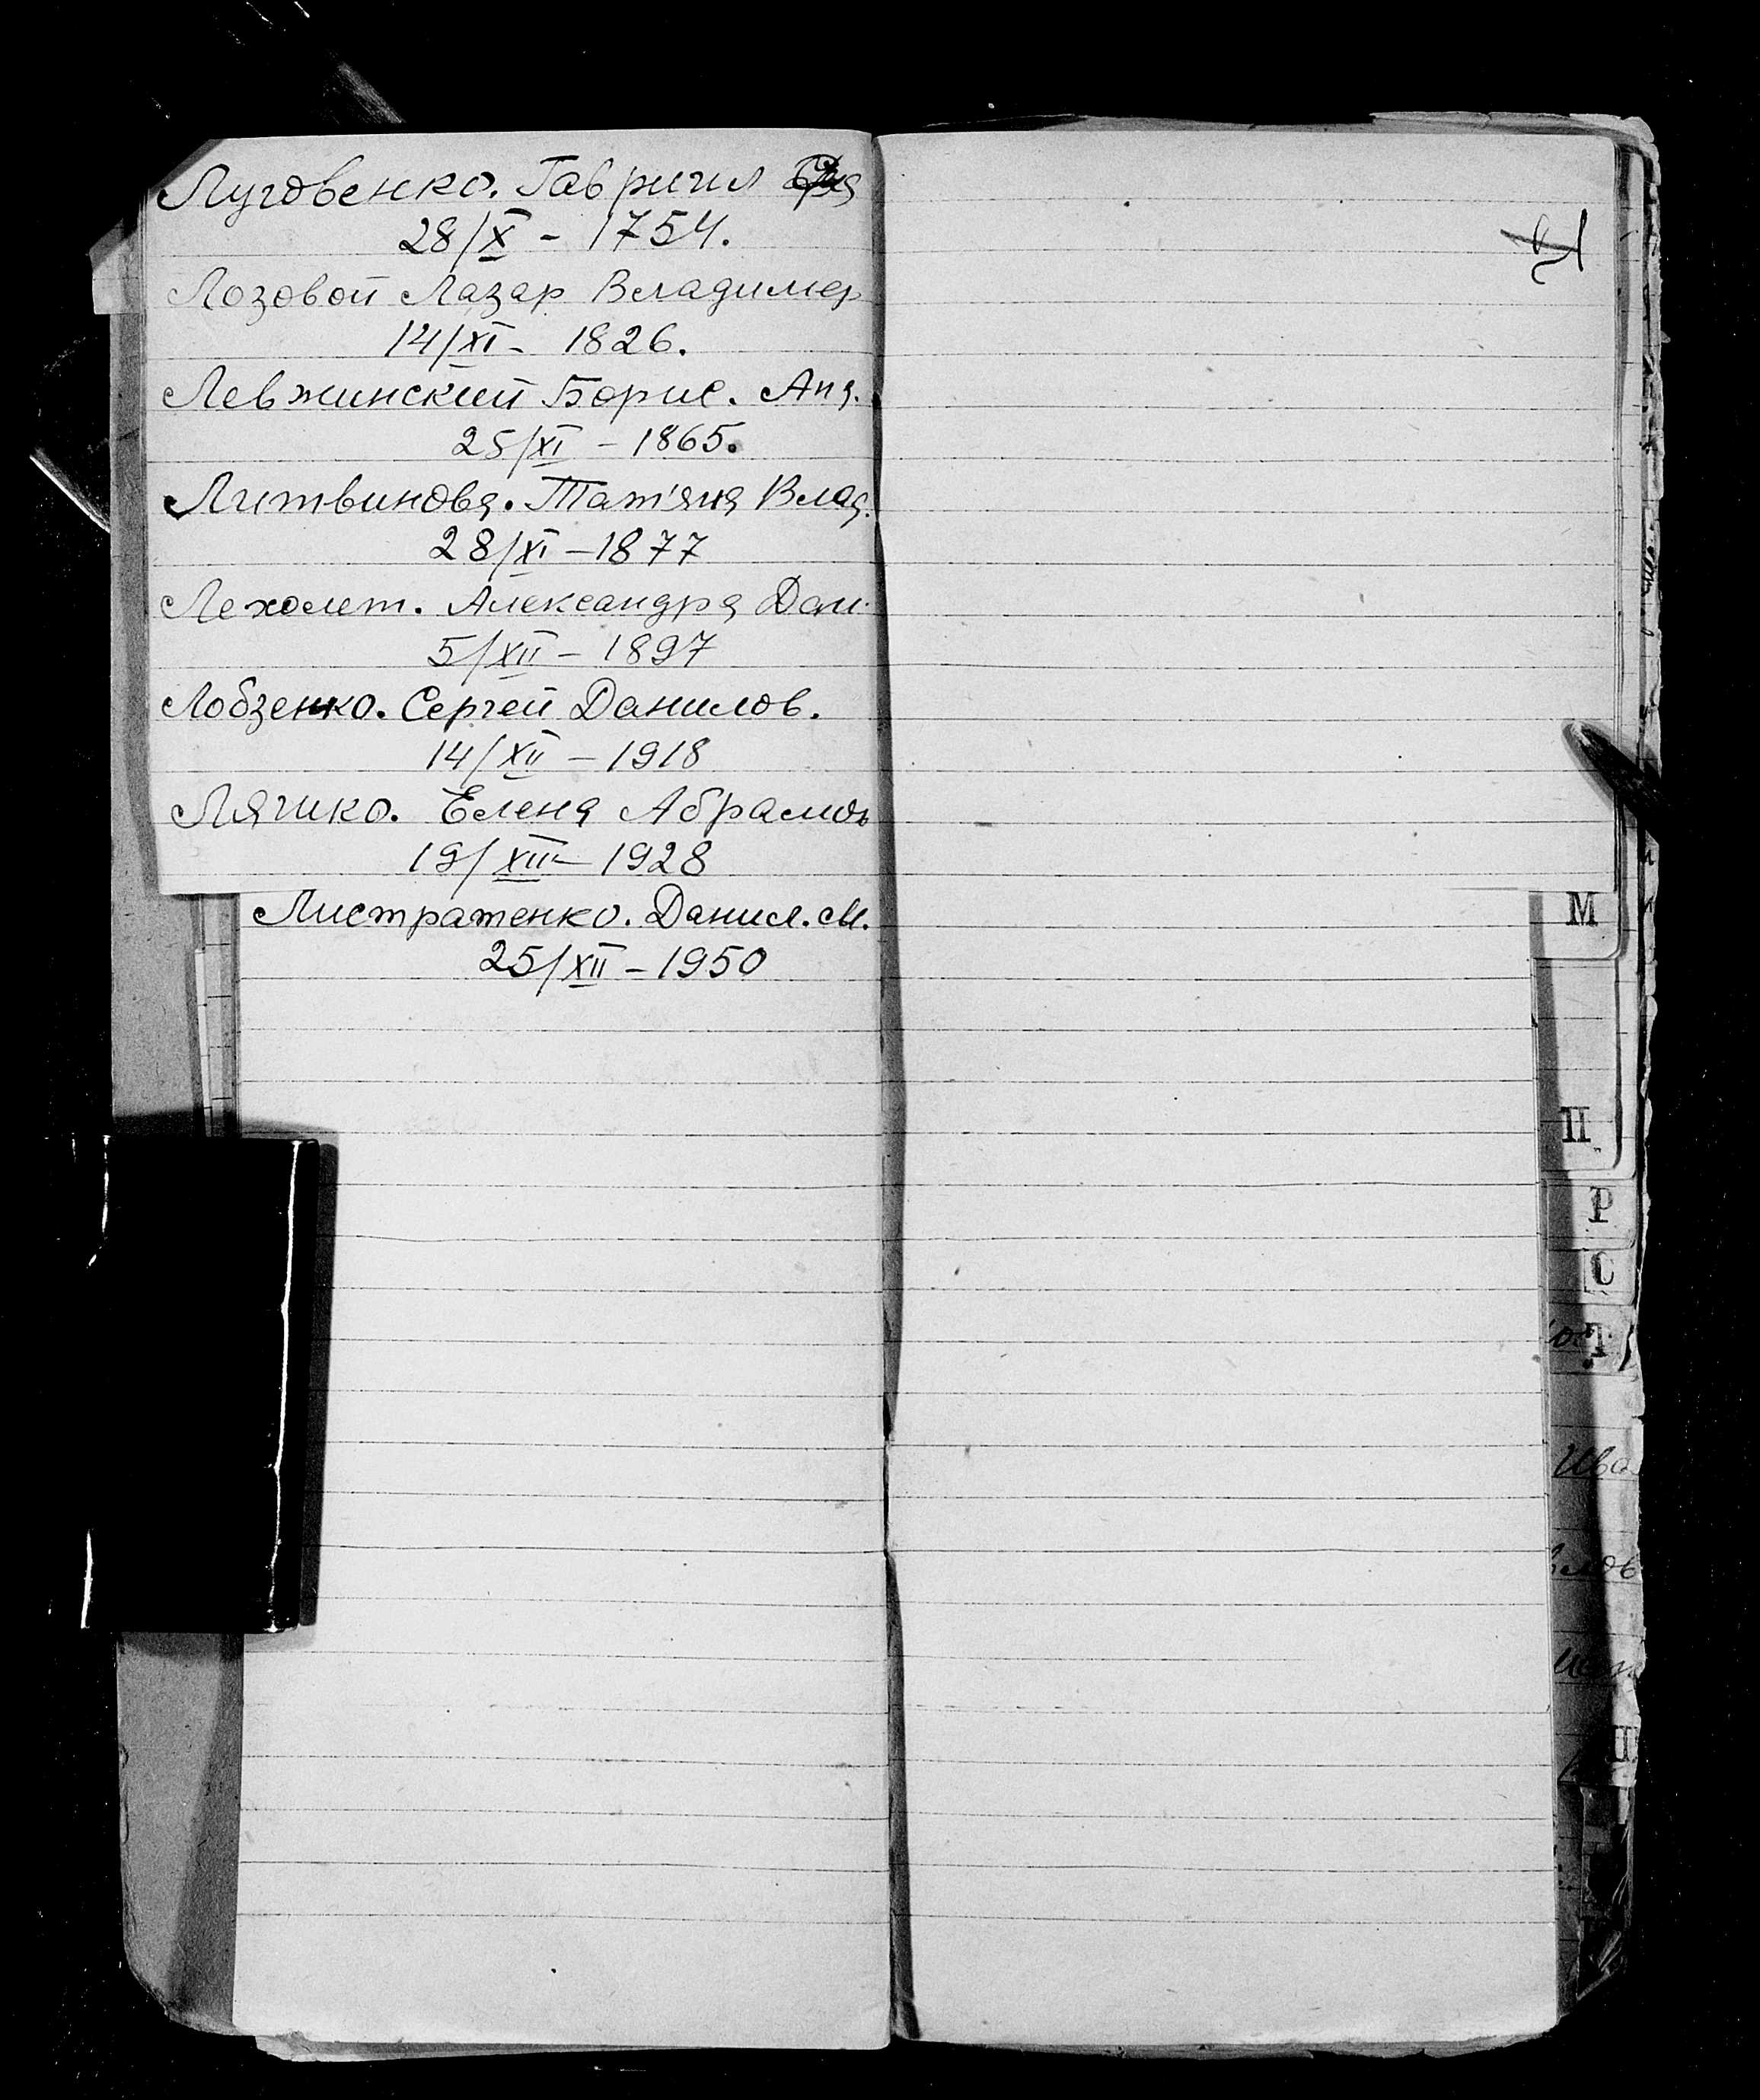 Луговенко. Гавриил
28/X - 1754.
Лозовой Лазар Владимир
14/XI - 1826.
Левжинский Борис. Анд.
25/XI - 1865.
Литвинова. Тат'яна Влад.
28/XI - 1877
Лехолет. Александра Дан.
5/XII - 1897
Лобзенко. Сергей Данилов.
14/XII - 1918
Ляшко. Елена Абрамов
19/XII - 1928
Листратенко. Данил. М.
25/XII - 1950
М
П
Р
С
Т